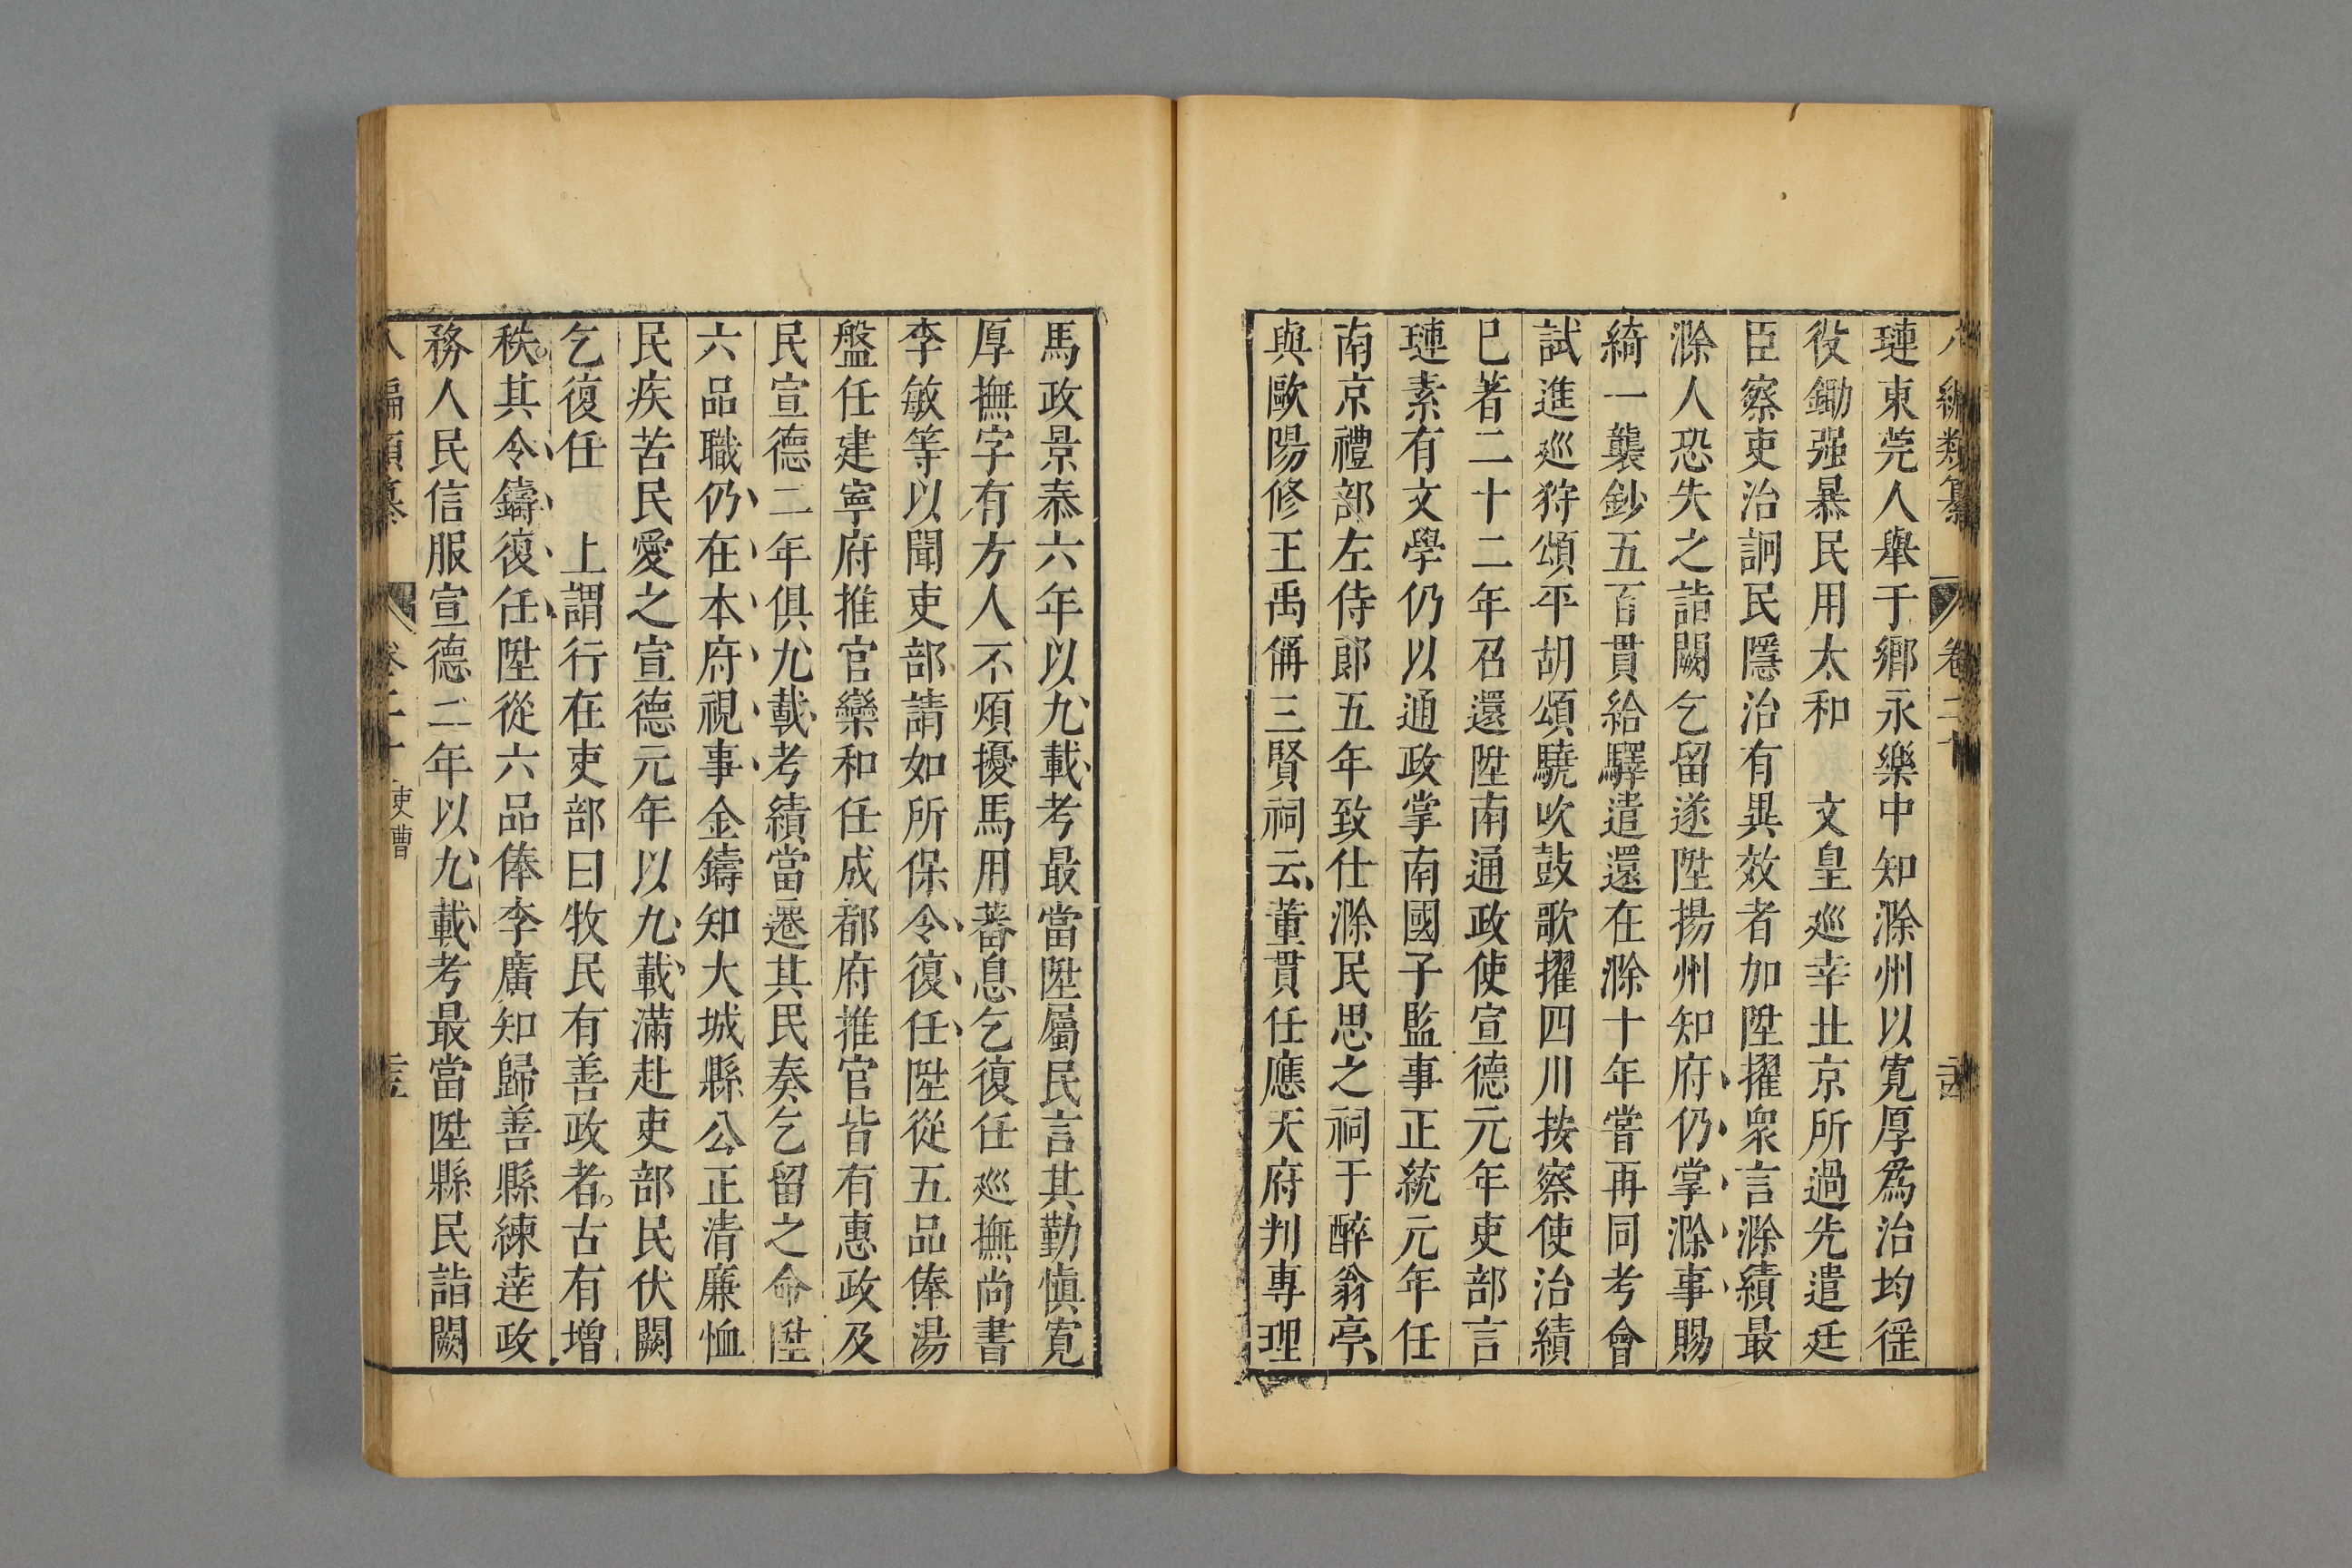 八編類纂 卷二十
璉東莞人舉于鄉永樂中知滁州以寬厚爲治均徭
役鋤强暴民用太和 文皇巡幸北京所過先遣廷
臣察吏治詗民隱治有異效者加陞擢衆言滁績最
滁人恐失之詣闕乞留遂陞揚州知府仍掌滁事賜
綺一襲鈔五百貫給驛遣還在滁十年嘗再同考會
試進巡狩頌平胡頌驍吹鼓歌擢四川按察使治績
已著二十二年召還陞南通政使宣德元年吏部言
璉素有文學仍以通政掌南國子監事正統元年任
南京禮部左侍郎五年致仕滁民思之祠于醉翁亭
與歐陽修王禹偁三賢祠云董貫任應天府判專理
馬政景泰六年以九載考最當陞屬民言其勤慎寬
厚撫字有方人不煩擾馬用蕃息乞復任巡撫尚書
李敏等以聞吏部請如所保令復任陞從五品俸湯
盤任建寧府推官欒和任成都府推官皆有惠政及
民宣德二年俱九載考績當遷其民奏乞留之命陞
六品職仍在本府視事金鑄知大城縣公正清廉恤
民疾苦民愛之宣德元年以九載滿赴吏部民伏闕
乞復任 上謂行在吏部曰牧民有善政者古有增
秩其令鑄復任陞從六品俸李廣知歸善縣練達政
務人民信服宣德二年以九載考最當陞縣民詣闕
八編類纂 卷二十 吏曹